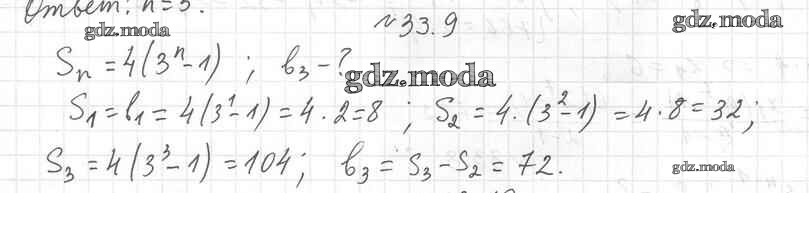 Ответ: n=5.
gdz.moda
№33.9
gdz.moda
Sₙ = 4(3ⁿ-1) ; b₃ - ?
gdz.moda
S₁ = b₁ = 4(3¹-1) = 4·2=8 ; S₂ = 4·(3²-1) = 4·8 = 32;
S₃ = 4(3³-1) = 104; b₃ = S₃ - S₂ = 72.
gdz.moda